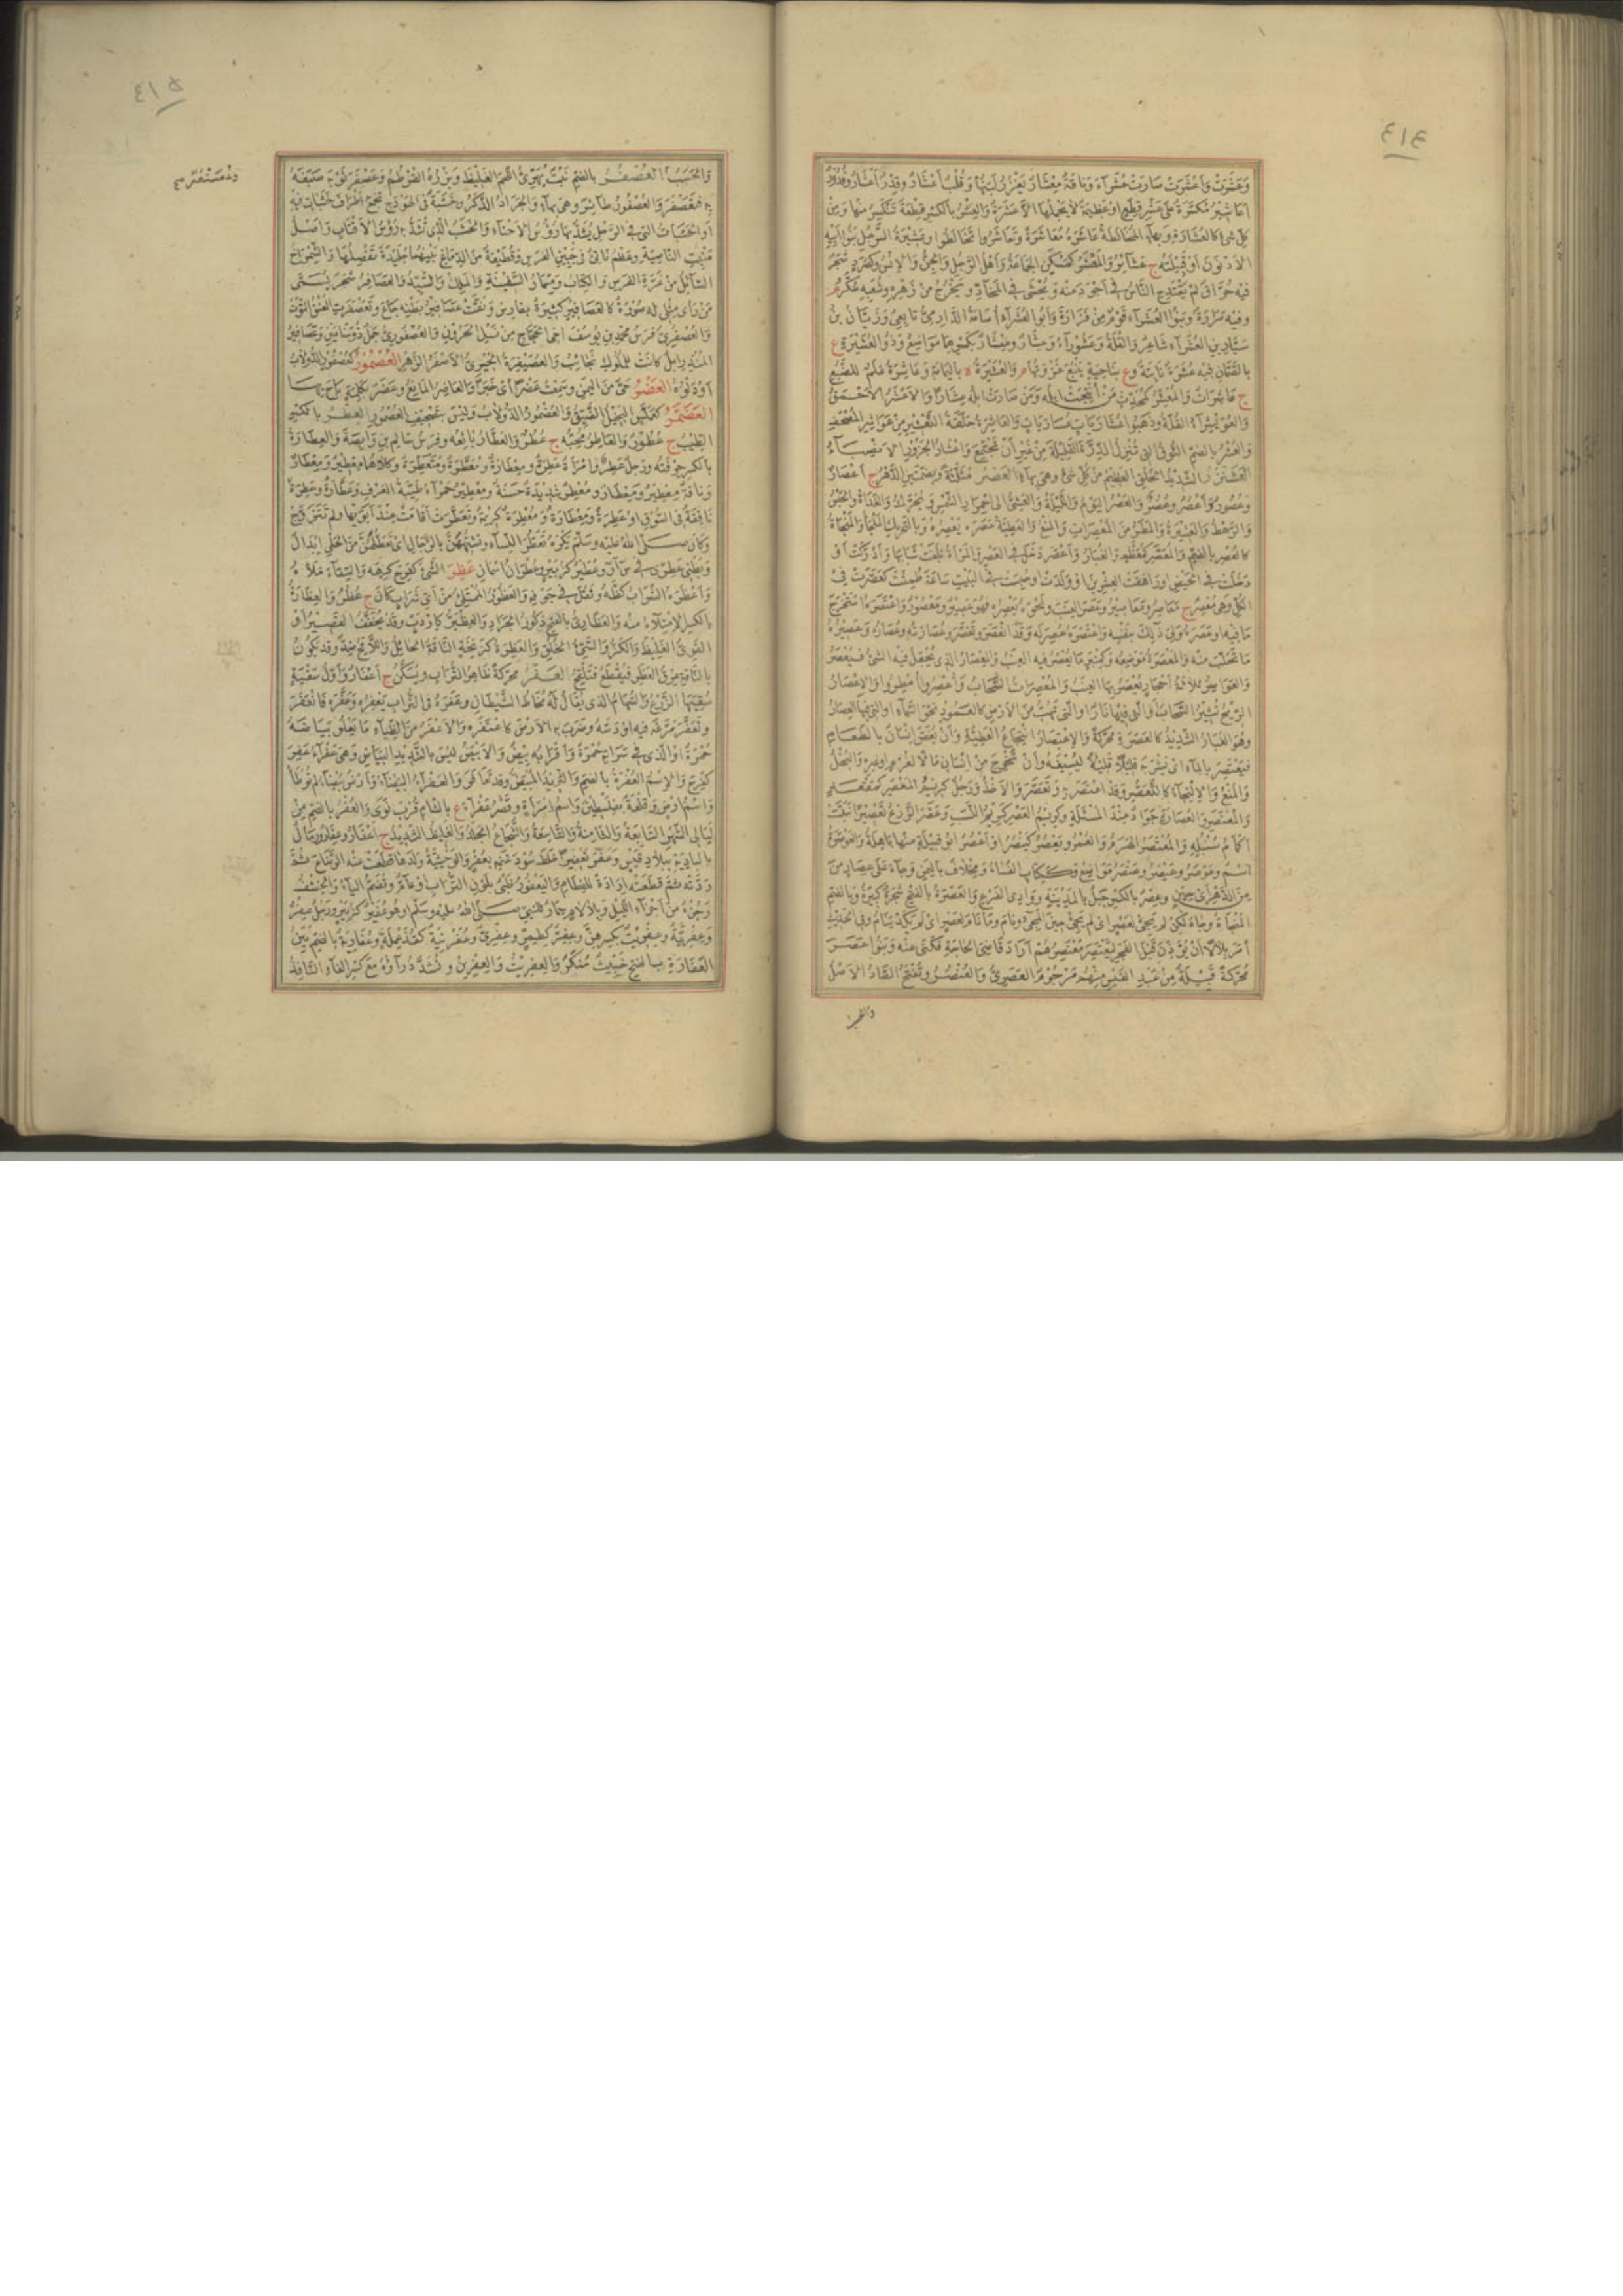 ٤١٤
وَعَشَّرَتْ وَأعْشَرَتْ صَارَتْ عُشَرَآءَ وَنَاقَةٌ مِعْشَارٌ يَغْزُرُ لَبَنُهَا وَقَلْبٌ أعْشَارٌ وَقِدْرٌ أعْشَارٌ وقُدُورٌ
أعَاشِيرُ مُكَسَّرَةٌ عَلَى عَشْرِ قِطَعٍ اوعَظِيمَةٌ لا يَحْمِلُهَا الاّ عَشَرَةٌ والعِشْرُ بالكَسْرِ قِطْعَةٌ تَنْكَسِرُ مِنْهَا وَمِنْ
كُلِّ شَىْءٍ كالعُشَارَةِ وبهآءٍ المُخَالَطَةُ عَاشَرَهُ مُعَاشَرَةً وتَعَاشَرُوا تَخَالَطُوا وعَشِيرَةُ الرَّجُلِ بَنُو أبِيهِ
الأدْنَوْنَ أوْ قَبِيلَتُهُ ج عَشَآئِرُ والمَعْشَرُ كَمَسْكَنٍ الجَمَاعَةُ وأهْلُ الرَّجُلِ والجِنُّ والإنْسُ وكصُرَدٍ شَجَرٌ
فيه حُرَّاقٌ لَمْ يَقْتَدِحِ النَّاسُ فى أجْوَدَ مِنْهُ وَيُحْشَى فى المَخَادِّ وَيَخْرُجُ مِنْ زَهْرِهِ وشُعَبِهِ سُكَّرٌ م
وفيه مَرَارَةٌ وَبَنُو العُشَرَآءِ قَوْمٌ مِنْ فَزَارَةَ وَأبُو العُشَرَآءِ أُسَامَةُ الدَّارِمِىُّ تَابِعِىٌّ وَزَبَّانُ بْنُ
سَيَّارِ بنِ العُشَرَآءِ شَاعِرٌ والقُلَةُ وَعَشُورَآءُ وَعِشَارٌ وتِعْشَارٌ بكَسْرِهِمَا مَوَاضِعُ وَذُو العُشَيْرَةِ ع
بالصَّمَّانِ فيه عُشَرَةٌ نَابِتَةٌ وع بِنَاحِيَةِ يَنْبُعَ غَزْوَتُهَا م والعُشَيْرَةُ ة باليَمَامَةِ وَعَاشِرَةُ عَلَمٌ للضَّبُعِ
ج عَاشِرَاتٌ وَالمُعَشِّرُ كمُحَدِّثٍ مَنْ أُنْتِجَتْ ابِلُهُ ومَنْ صَارَتْ ابِلُهُ عِشَارًا وَالأعْشَرُ الأحْمَقُ
وَالعُوَيْشِرَآءُ القُلَةُ وذَهَبُوا عُشَارَيَاتٍ عُسَارَيَاتٍ وَالعَاشِرَةُ حَلْقَةُ التَّعْشِيرِ مِنْ عَوَاشِرِ المُصْحَفِ
والعُشْرُ بالضَّمِّ النُّوقُ التى تُنْزِلُ الدِّرَّةَ القَلِيلَةَ مِنْ غَيْرِ أنْ تَجْتَمِعَ وَأعْشَارُ الجَزُورِ الأنْصِبَآءُ
العَشَنْزَرُ الشَّدِيدُ الخَلْقِ العَظِيمُ مِنْ كُلِّ شَىْءٍ وهى بهآءٍ العَصْرُ مُثَلَّثَةً وبضَمَّتَيْنِ الدَّهْرُ ج أعْصَارٌ
وعُصُورٌ وأعْصُرٌ وعُصُرٌ وَالعَصْرُ اليَوْمُ وَاللَّيْلَةُ وَالعَشِىُّ الى احْمِرَارِ الشَّمْسِ وَيُحَرَّكُ وَالغَدَاةُ وَالحَبْسُ
وَالرَّهْطُ وَالعَشِيرَةُ وَالمَطَرُ مِنَ المُعْصِرَاتِ وَالمَنْعُ وَالعَطِيَّةُ عَصَرَهُ يَعْصِرُهُ وَبِالتَّحْرِيكِ المَلْجَأُ وَالمَنْجَاةُ
كالعُصْرِ بالضَّمِّ والمُعَصَّرِ كمُعَظَّمٍ والغُبَارُ وَأعْصَرَ دَخَلَ فى العَصْرِ والمَرْأةُ بَلَغَتْ شَبَابَهَا وَأدْرَكَتْ أوْ
دَخَلَتْ فى الحَيْضِ اورَاهَقَتِ العِشْرِينَ اوْوَلَدَتْ اوحُبِسَتْ فى البَيْتِ سَاعَةَ طَمِثَتْ كعَصَّرَتْ فى
الكُلِّ وهى مُعْصِرٌ ج مَعَاصِرُ ومَعَاصِيرُ وعَصَرَ العِنَبَ ونَحْوَهُ يَعْصِرُهُ فهوَ عَصِيرٌ ومَعْصُورٌ وَاعْتَصَرَهُ اسْتَخْرَجَ
مَا فِيهِ اوعَصَرَهُ وَلِىَ ذٰلِكَ بِنَفْسِهِ وَاعْتَصَرَهُ عُصِرَ لَهُ وَقَدِ انْعَصَرَ وتَعَصَّرَ وعُصَارَتُهُ وعُصَارُهُ وعَصِيرُهُ
مَا تَحَلَّبَ مِنْهُ وَالمَعْصَرَةُ مَوْضِعُهُ وكمِنْبَرٍ مَا يُعْصَرُ فيه العِنَبُ والمِعْصَارُ الذى يُجْعَلُ فيه الشَّىْءُ فَيُعْصَرُ
وَالعَوَاصِرُ ثَلاثَةُ أحْجَارٍ يُعْصَرُ بِهَا العِنَبُ وَالمُعْصِرَاتُ السَّحَابُ وَأُعْصِرُوا أُمْطِرُوا وَالإعْصَارُ
الرِّيحُ تُثِيرُ السَّحَابَ أوالَّتى فِيهَا نَارٌ اوالَّتى تَهُبُّ مِنَ الأرْضِ كالعَمُودِ نَحْوَ السَّمَآءِ اوالتى فيها العِصَارُ
وهُوَ الغُبَارُ الشَّدِيدُ كالعَصَرَةِ مُحَرَّكَةً وَالإعْتِصَارُ انْتِجَاعُ العَطِيَّةِ وَأنْ يُغَصَّ إنْسَانٌ بالطَّعَامِ
فيَعْتَصِرَ بالمَآءِ اى يَشْرَبَهُ قَلِيلاً قَلِيلاً لِيُسِيغَهُ وأنْ تُخْرِجَ مِنْ انْسَانٍ مَالاً لِغُرْمٍ اوغيرِهِ وَالبُخْلُ
وَالمَنْعُ وَالإلْتِجَآءُ كالتَّعَصُّرِ وَقَدِ اعْتَصَرَ بِهِ وَتَعَصَّرَ وَالأخْذُ وَرَجُلٌ كَرِيمُ المَعْصَرِ كمَقْعَدٍ
وَالمُعْتَصَرِ وَالعُصَارَةِ جَوَادٌ عِنْدَ المَسْئَلَةِ وكَرِيمُ العَصْرِ كَرِيمُ النَّسَبِ وَعَصَّرَ الزَّرْعُ تَعْصِيرًا نَبَتَتْ
أكْمَامُ سُنْبُلِهِ وَالمُعْتَصَرُ الهَرَمُ وَالعُمُرُ ويَعْصُرُ كيَنْصُرُ اوْ أعْصُرُ ابُو قَبِيلَةٍ مِنْهَا بَاهِلَةُ والعَوْصَرَةُ
اسْمٌ وعَوْصَرٌ وعَيْصَرٌ وعَنْصَرٌ مَوَاضِعُ وككِتَابٍ الفُسَآءُ وَمِخْلافٌ باليَمَنِ وجآءَ عَلَى عِصَارٍ مِنَ
مِنَ الدَّهْرِ أى حِينٍ وعِصْرٌ بالكَسْرِ جَبَلٌ بالمَدِينَةِ وَوَادِى الفُرْعِ والعَصْرَةُ بالفتحِ شَجَرَةٌ كبيرَةٌ وبالضمِّ
المَنْجَاةُ وجآءَ لكِنْ لَمْ يَجِئْ لِعُصْرٍ اى لَمْ يَجِئْ حِينَ المَجِىءِ ونَامَ ومَا نَامَ لِعُصْرٍ اى لَمْ يَكَدْ يَنَامُ وفى الحَدِيثِ
أمَرَ بِلالاً أنْ يُؤَذِّنَ قَبْلَ الفَجْرِ لِيَعْتَصِرَ مُعْتَصِرُهُمْ أرَادَ قَاضِىَ الحَاجَةِ فكَنَّى عَنْهُ وبَنُو عَصَرَ
مُحَرَّكَةً قَبِيلَةٌ مِنْ عَبْدِ القَيْسِ مِنْهُمْ مَرْجُومٌ العَصَرِىُّ وَالعُنْصُرُ وَتُفْتَحُ الصَّادُ الأصْلُ
والحسب
٤١٥
وَالحَسَبُ العُصْفُرُ بالضمِّ نَبْتٌ يُهَرِّئُ اللَّحْمَ الغَلِيظَ وَبِزْرُهُ القُرْطُمُ وعَصْفَرَ ثَوْبَهُ صَبَغَهُ
بِهِ فَتَعَصْفَرَ وَالعُصْفُورُ طَآئِرٌ وهى بهآءٍ وَالجَرَادُ الذَّكَرُ وخَشَبَةٌ فى الهَوْدَجِ تَجْمَعُ أطْرَافَ خَشَبَاتٍ فِيهِ
أوالخَشَبَاتُ التى فى الرَّحْلِ يُشَدُّ بِهَا رُؤُسُ الأحْنَآءِ وَالخَشَبُ الَّذِى تُشَدُّ بِهِ رُؤُسُ الأقْتَابِ وَأصْلُ
مَنْبِتِ النَّاصِيَةِ وعَظْمٌ نَاتِئٌ فى جَبِينِ الفَرَسِ وقُطَيْعَةٌ مِنَ الدِّمَاغِ بَيْنَهُمَا جُلَيْدَةٌ تَفْصِلُهَا وَالشِّمْرَاخُ
السَّآئِلُ مِنْ غُرَّةِ الفَرَسِ والكِتَابُ ومِسْمَارُ السَّفِينَةِ وَالمَلِكُ وَالسَّيِّدُ وَالعَصَافِيرُ شَجَرٌ يُسَمَّى
مَنْ رَأى مِثْلِى لَهُ صُورَةٌ كالعَصَافِيرِ كَثِيرَةٌ بفَارِسَ وَنَقَّتْ عَصَافِيرُ بَطْنِهِ جَاعَ وتَعَصْفَرَتِ العُنُقُ الْتَوَتْ
وَالعُصْفُرِىُّ فَرَسُ مُحَمَّدِ بنِ يُوسُفَ أخِى الحَجَّاجِ مِنْ نَسْلِ الحَرُونِ وَالعُصْفُورِىُّ جَمَلٌ ذُو سَنَامَيْنِ وعَصَافِيرُ
المُنْذِرِ إبِلٌ كَانَتْ لِلْمُلُوكِ نَجَائِبُ وَالعُصَيْفِرَةُ الخِيرِىُّ الأصْفَرُ الزَّهْرِ العُصْمُورُ كعُصْفُورٍ الدُّولابُ
أوْ دَلْوُهُ العَضْرُ حَىٌّ مِنَ اليَمَنِ وسَمِعْتُ عَضْرًا أى خَبَرًا وَالعَاضِرُ المَانِعُ وعَضَرَ بكَلِمَةٍ بَاحَ بِهَا
العَضَمَّرُ كعَمَلَّسٍ البَخِيلُ الضَّيِّقُ والعُضْمُورُ الدُّولابُ وَلَيْسَ بتَصْحِيفِ العُصْمُورِ العِطْرُ بالكَسْرِ
الطِّيبُ ج عُطُورٌ والعَاطِرُ مُحِبُّهُ ج عُطُرٌ والعَطَّارُ بَائِعُهُ وفَرَسُ سَالِمِ بنِ وَابِصَةَ وَالعِطَارَةُ
بالكسرِ حِرْفَتُهُ وَرَجُلٌ عَطِرٌ وامْرَأةٌ عَطِرَةٌ ومِعْطَارَةٌ ومُعَطَّرَةٌ ومُتَعَطِّرَةٌ وكِلاهُمَا مِعْطِيرٌ ومِعْطَارٌ
وَنَاقَةٌ مِعْطِيرٌ ومِعْطَارٌ ومُعْطِرٌ شَدِيدَةٌ حَسَنَةٌ ومِعْطِيرٌ حَمْرَآءُ طَيِّبَةُ العَرْفِ وَعَطَّارَةٌ وعَطِرَةٌ
نَافِقَةٌ فى السُّوقِ اوعَطِرَةٌ ومِعْطَارَةٌ ومُعْطِرَةٌ كَرِيمَةٌ وتَعَطَّرَتْ أقَامَتْ عِنْدَ أبَوَيْهَا ولم تَتَزَوَّجْ
وكَانَ صَلَّى اللهُ عَلَيْهِ وسَلَّمَ يَكْرَهُ تَعَطُّرَ النِّسَآءِ وتَشَبُّهَهُنَّ بِالرِّجَالِ اى تَعَطُّلَهُنَّ مِنَ الحَلْىِ إبْدَالٌ
وَبَطْنِى عَطِّرِى فى سأر وعُطَيْرٌ كزُبَيْرٍ وعَطْرَانُ اسْمَانِ عَظِرَ الشَّىْءَ كفَرِحَ كَرِهَهُ وَالسِّقَآءَ مَلأهُ
وَأعْظَرَهُ الشَّرَابُ كَظَّهُ وَثَقُلَ فى جَوْفِهِ وَالعَظُورُ المُمْتَلِئُ مِنْ أىِّ شَرَابٍ كَانَ ج عُظُرٌ والعِظَارَةُ
بالكسرِ الإمْتِلآءُ مِنْهُ والعَظَارِىُّ بالفتحِ ذُكُورُ الجَرَادِ وَالعِظْيَرُّ كإرْدَبٍّ وقَدْ يُخَفَّفُ القَصِيرُ أوْ
القَوِىُّ الغَلِيظُ وَالكَزُّ وَالسَّيِّئُ الخُلُقِ والعَظِرَةُ كزَنِخَةٍ النَّاقَةُ الحَائِلُ واللاَّقِحُ ضِدٌّ وقَدْ تَكُونُ
بِالنَّاقَةِ عِرْقُ العَظَرِ فيُقْطَعُ فتَلْقَحُ العَفَرُ مُحَرَّكَةً ظَاهِرُ التُّرَابِ ويُسَكَّنُ ج أعْفَارٌ وأوَّلُ سَقْيَةٍ
سُقِيَهَا الزَّرْعُ والسُّهَامُ الذى يُقَالُ لَهُ مُخَاطُ الشَّيْطَانِ وعَفَرَهُ فى التُّرَابِ يَعْفِرُهُ وَعَفَّرَهُ فَانْعَفَرَ
وتَعَفَّرَ مَرَّغَهُ فيه اوْ دَسَّهُ وضَرَبَ بِهِ الأرْضَ كاعْتَفَرَهُ وَالأعْفَرُ مِنَ الظِّبَآءِ مَا يَعْلُو بَيَاضَهُ
حُمْرَةٌ اوْ الَّذِى فى سَرَاتِهِ حُمْرَةٌ وَأقْرَابُهُ بِيضٌ وَالأبْيَضُ لَيْسَ بالشَّدِيدِ البَيَاضِ وهى عَفْرَآءُ عَفِرَ
كفَرِحَ وَالإسْمُ العُفْرَةُ بالضمِّ والثَّرِيدُ المُبَيَّضُ وقد تَعَافَرَ وَالعَفْرَآءُ البَيْضَآءُ وَأرْضٌ بَيْضَآءُ لَمْ تُوطَأْ
وَاسْمُ أرْضٍ وَقَلْعَةٌ بِفِلَسْطِينَ وَاسْمُ امْرَأةٍ وقَصْرُ عَفْرَآءَ ع بالشَّأمِ قُرْبَ نَوَى والعُفْرُ بالضمِّ مِنْ
لَيَالِى الشَّهْرِ السَّابِعَةُ وَالثَّامِنَةُ وَالتَّاسِعَةُ وَالشُّجَاعُ الجَلْدُ وَالغَلِيظُ الشَّدِيدُ ج أعْفَارٌ وعِفَارٌ ورِمَالٌ
بِالبَادِيَةِ بِبِلادِ قَيْسٍ وَعَفَّرَ تَعْفِيرًا خَلَطَ سُودَ غَنَمِهِ بِعُفْرٍ وَالوَحْشِيَّةُ وَلَدَهَا قَطَعَتْ عَنْهُ الرَّضَاعَ ثُمَّ
رَدَّتْهُ ثُمَّ قَطَعَتْهُ إرَادَةً لِلفِطَامِ وَاليَعْفُورُ ظَبْىٌ بِلَوْنِ التُّرَابِ أوْ عَامٌّ وتُضَمُّ اليَآءُ والخِشْفُ
وَجُزْءٌ مِنْ أجْزَآءِ اللَّيْلِ وَبِلا لامٍ حِمَارٌ للنَّبِىِّ صَلَّى اللهُ عليه وسَلَّمَ اوهُوَ عُفَيْرٌ كزُبَيْرٍ وَرَجُلٌ عِفْرٌ
وعِفْرِيَةٌ وعِفْرِيتٌ بكَسْرِهِنَّ وعِفِرٌّ كطِمِرٍّ وعِفْرِىٌّ وعُفَرْنِيَةٌ كقُذَعْمِلَةٍ وعُفَارِيَةٌ بالضمِّ بَيِّنُ
العَفَارَةِ بالفتحِ خَبِيثٌ مُنْكَرٌ وَالعِفْرِيتُ وَالعِفْرِينُ وتُشَدَّدُ رَآؤُهُ مَعَ كَسْرِ الفَآءِ النَّافِذُ